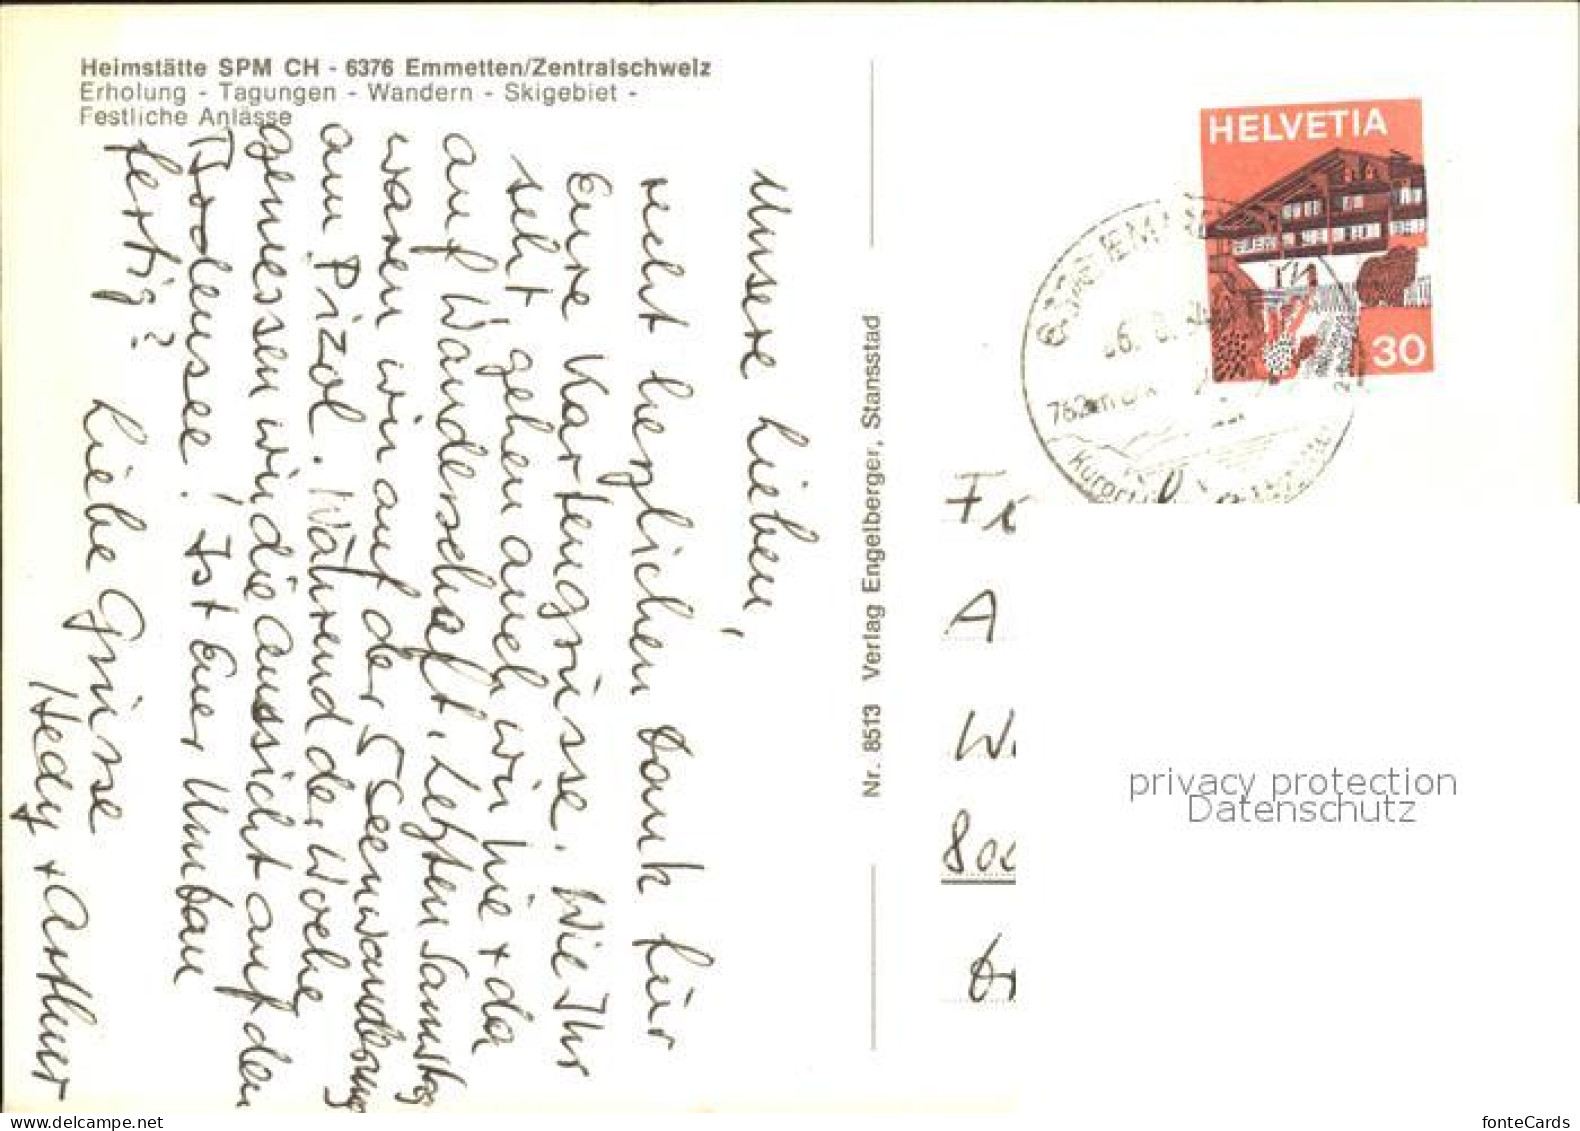 Heimstätte SPM CH - 6376 Emmetten/Zentralschweiz
Erholung - Tagungen - Wandern - Skigebiet -
Festliche Anlässe
Unsere Lieben,
recht herzlichen Dank für
Eure Kartengrüsse. Wie Ihr
seht gehen auch wir hie + da
auf Wanderschaft. Letzten Samstag
waren wir auf der 5 Seenwanderung
am Pizol. Während der Woche
genressen wir die Aussicht auf den
Bodensee! Ist Euer Umbau
fertig? Liebe Grüsse
Hedy + Arthur
Nr. 8513 Verlag Engelberger, Stansstad
HELVETIA
30
Kurort
Fr
A
W
800
privacy protection
Datenschutz
fonteCards